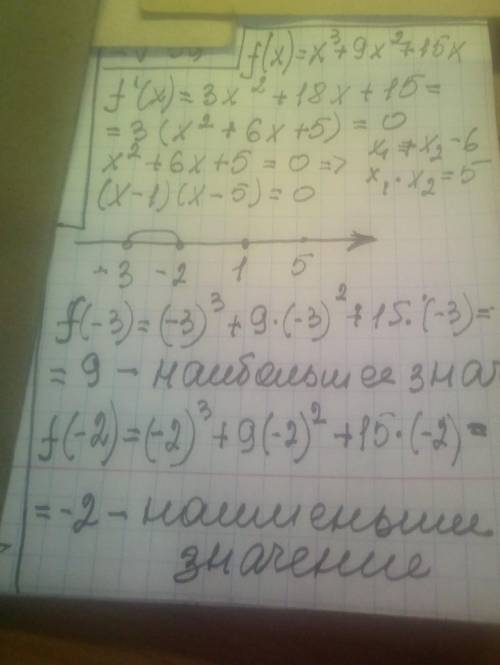 f(x)=x³+9x²+15x
f'(x)=3x²+18x+15=
=3(x²+6x+5)=0
x²+6x+5=0=> x₁+x₂-6
(x-1)(x-5)=0 x₁·x₂=5
-3 -2 1 5
f(-3)=(-3)³+9·(-3)²+15·(-3)=
=9-наибольшее знач
f(-2)=(-2)³+9(-2)²+15·(-2)=
=-2-наименьши
значение